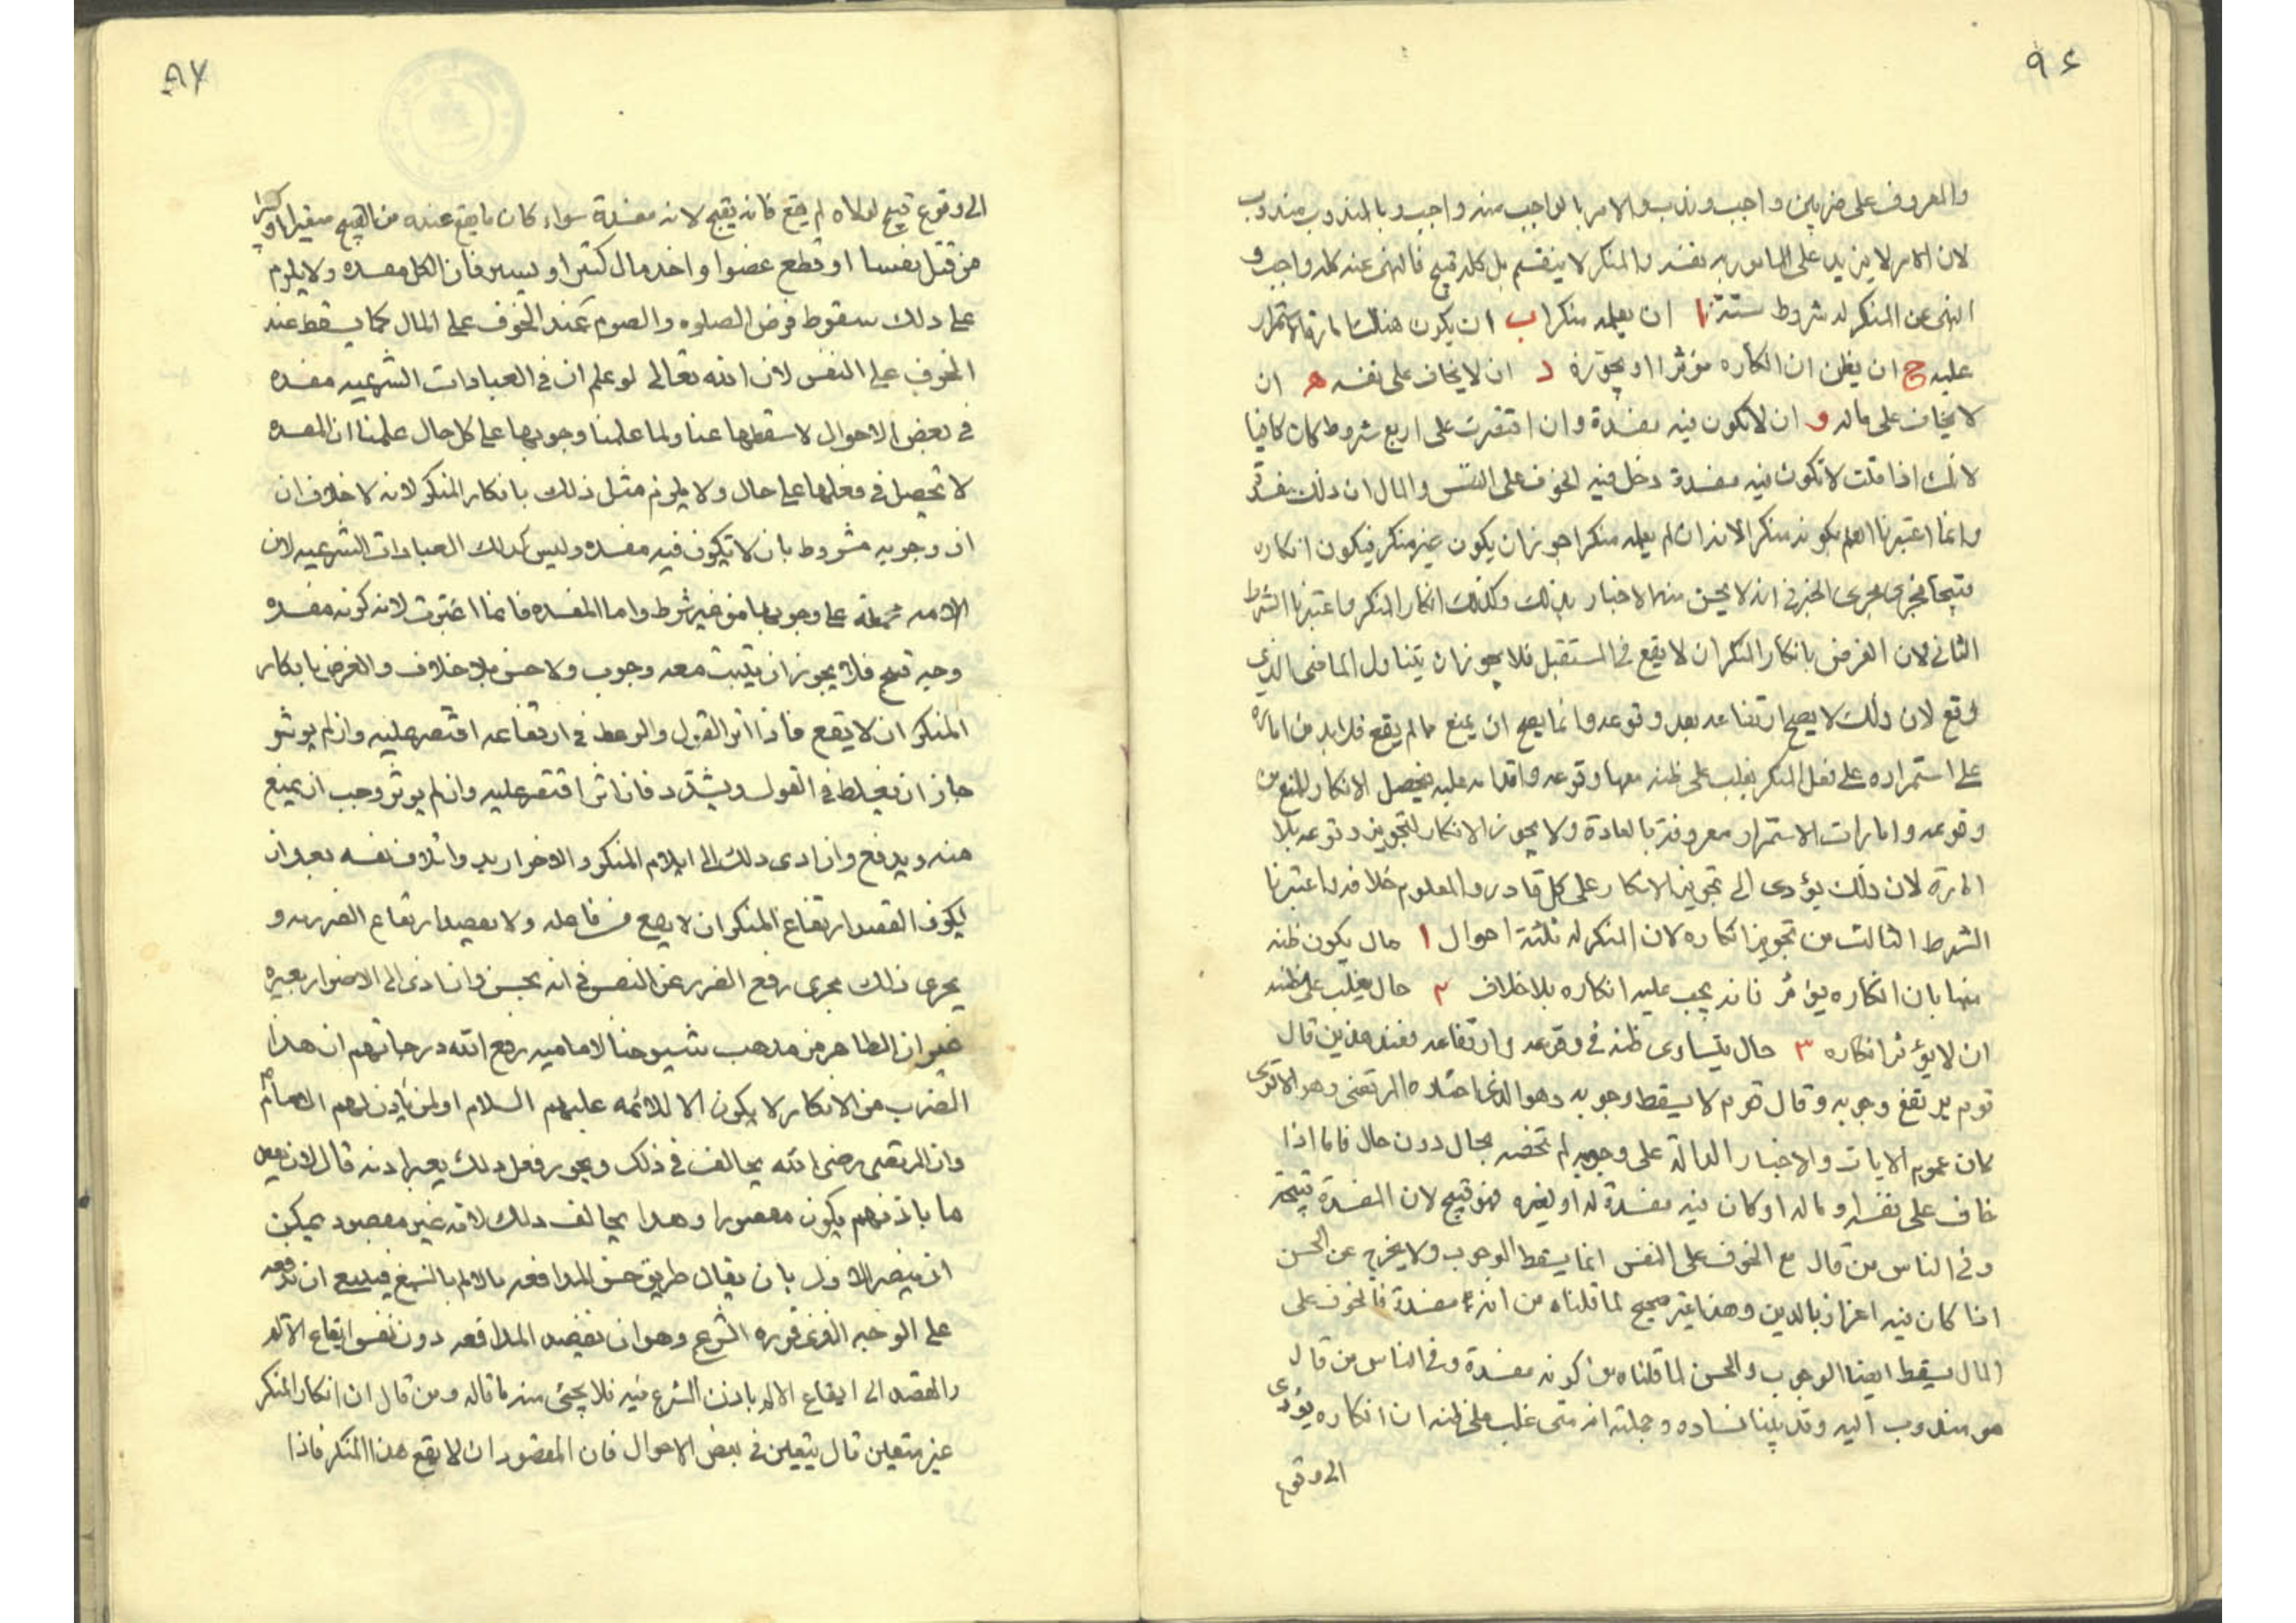 ٩٦
والمعروف على ضربين واجب وندب والامر بالواجب منه واجب وبالمندوب مندوب
لان الامر لا يزيد على المامور به نفسه والمنكر لا ينقسم بل كله قبيح فالنهى عنه كله واجب و
النهى عن المنكر له شروط ستة ا ان يعلمه منكرا ب ان يكون هناك امارة الاستمرار
عليه ج ان يظن ان انكاره مؤثرا او يجوزه د ان لا يخاف على نفسه ه ان
لا يخاف على ماله و ان لا يكون فيه مفسدة وان اقتصرت على اربع شروط كان كافيا
لانك اذا قلت لا تكون فيه مفسدة دخل فيه الخوف على النفس والمال لان ذلك مفسدة
وانما اعتبرنا العلم بكونه منكرا لانه ان لم يعلمه منكرا جوز ان يكون غير منكر فيكون انكاره
قبيحا فجرى مجرى الخبر فى انه لا يحسن منه الاخبار بذلك وكذلك انكار المنكر واعتبرنا الشرط
الثانى لان الغرض بانكار المنكر ان لا يقع فى المستقبل فلا يجوز ان يتناول الماضى الذى
وقع لان ذلك لا يصح ارتفاعه بعد وقوعه وانما يصح ان يمنع مما لم يقع فلا بد من امارة
على استمراره على فعل المنكر يغلب على ظنه معها وقوعه واقدامه عليه فيحصل الانكار للمنع من
وقوعه وامارات الاستمرار معروفة بالعادة ولا يجوز الانكار لتجويز وقوعه بلا
امارة لان ذلك يؤدى الى تجويز الانكار على كل قادر والمعلوم خلافه واعتبرنا
الشرط الثالث من تجويز انكاره لان المنكر له ثلثة احوال ١ حال يكون ظنه
فيها بان انكاره يؤثر فانه يجب عليه انكاره بلا خلاف ٢ حال يغلب على ظنه
ان لا يؤثر انكاره ٣ حال يتساوى ظنه فى وقوعه وارتفاعه فعند هذين قال
قوم يرتفع وجوبه وقال قوم لا يسقط وجوبه وهو الذى اختاره المرتضى وهو الاقوى
لان عموم الايات والاخبار الدالة على وجوبه لم تخصه بحال دون حال فاما اذا
خاف على نفسه او ماله او كان فيه مفسدة له او لغيره فهو قبيح لان المفسدة قبيحة
وفى الناس من قال مع الخوف على النفس انما يسقط الوجوب ولا يخرج عن الحسن
اذا كان فيه اعزاز بالدين وهذا غير صحيح لما قلناه من انه مفسدة فالخوف على
المال يسقط ايضا الوجوب والحسن لما قلناه من كونه مفسدة وفى الناس من قال
هو مندوب اليه وقد بينا فساده وجملته انه متى غلب على ظنه ان انكاره يؤدى
الى وقوع
٩٧
الى وقوع قبيح لولاه لم يقع فانه يقبح لانه مفسدة سواء كان ما يقع عنده من القبيح صغيرا او كبيرا
من قتل نفسا او قطع عضوا واخذ مال كثير او يسير فان الكل مفسده ولا يلزم
على ذلك سقوط فرض الصلوه والصوم عند الخوف على المال كما يسقط عند
الخوف على النفس لان الله تعالى لو علم ان فى العبادات الشرعيه مفسده
فى بعض الاحوال لاسقطها عنا ولما علمنا وجوبها على كل حال علمنا ان المفسده
لا تحصل فى فعلها على حال ولا يلزم مثل ذلك بانكار المنكر لانه لا خلاف ان
ان وجوبه مشروط بان لا يكون فيه مفسده وليس كذلك العبادات الشرعيه لان
الامه مجمعة على وجوبها من غير شرط واما المفسده فانما اعتبرت لانه كونه مفسده
وجه قبح فلا يجوز ان يثبت معه وجوب ولا حسن بلا خلاف والغرض بانكار
المنكر ان لا يقع فاذا اثر القول والوعظ فى ارتفاعه اقتصر عليه وان لم يوثر
جاز ان يغلظ فى القول ويشدد فان اثر اقتصر عليه وان لم يوثر وجب ان يمنع
منه ويدفع وان ادى ذلك الى ايلام المنكر والاضرار به واتلاف نفسه بعد ان
يكون القصد ارتفاع المنكر ان لا يقع من فاعله ولا يقصد ايقاع الضرر به و
يجرى ذلك مجرى رفع الضرر عن النفس فى انه يحسن وان ادى الى الاضرار بغيره
غير ان الظاهر من مذهب شيوخنا الاماميه رفع الله درجاتهم ان هذا
الضرب من الانكار لا يكون الا للائمه عليهم السلام او لمن ياذن لهم الامام
وان المرتضى رضى الله يخالف فى ذلك ويجوز فعل ذلك بغير اذنه قال لان يفعل
ما باذنهم يكون مقصورا وهذا يخالف ذلك لانه غير مقصود يمكن
ان ينصر الاول بان يقال طريق حسن المدافعه بالالم بالشرع فينبغى ان ندفعه
على الوجه الذى قرره الشرع وهو ان يقصد المدافعه دون نفس ايقاع الالم
والقصد الى ايقاع الالم باذن الشرع فيه فلا يجئ منه ما قاله ومن قال ان انكار المنكر
غير متعين قال يتعين فى بعض الاحوال فان المقصود ان لا يقع هذا المنكر فاذا